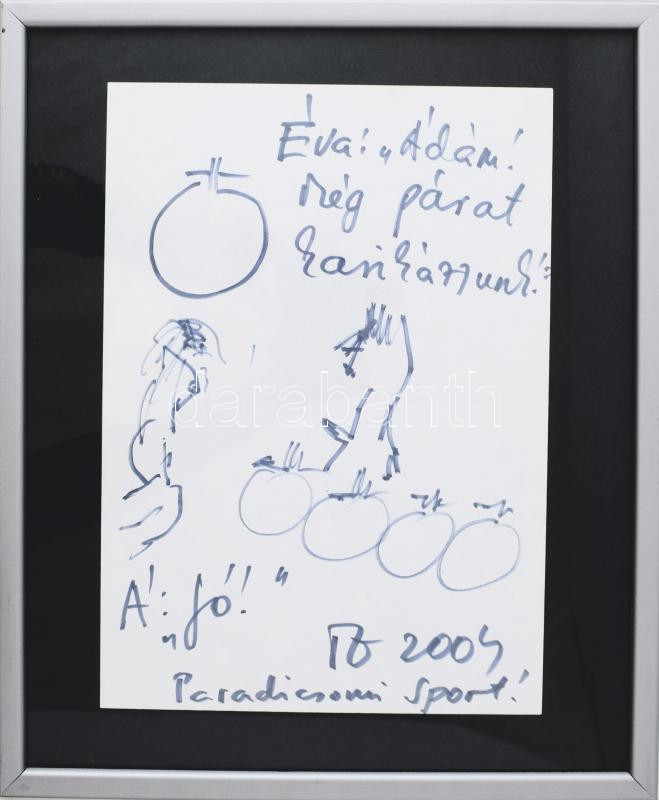 Éva: „Ádám!
még párat
kasikázzunk!”
darabanth
Á: „Jó!"
2004
Paradicsomi sport!